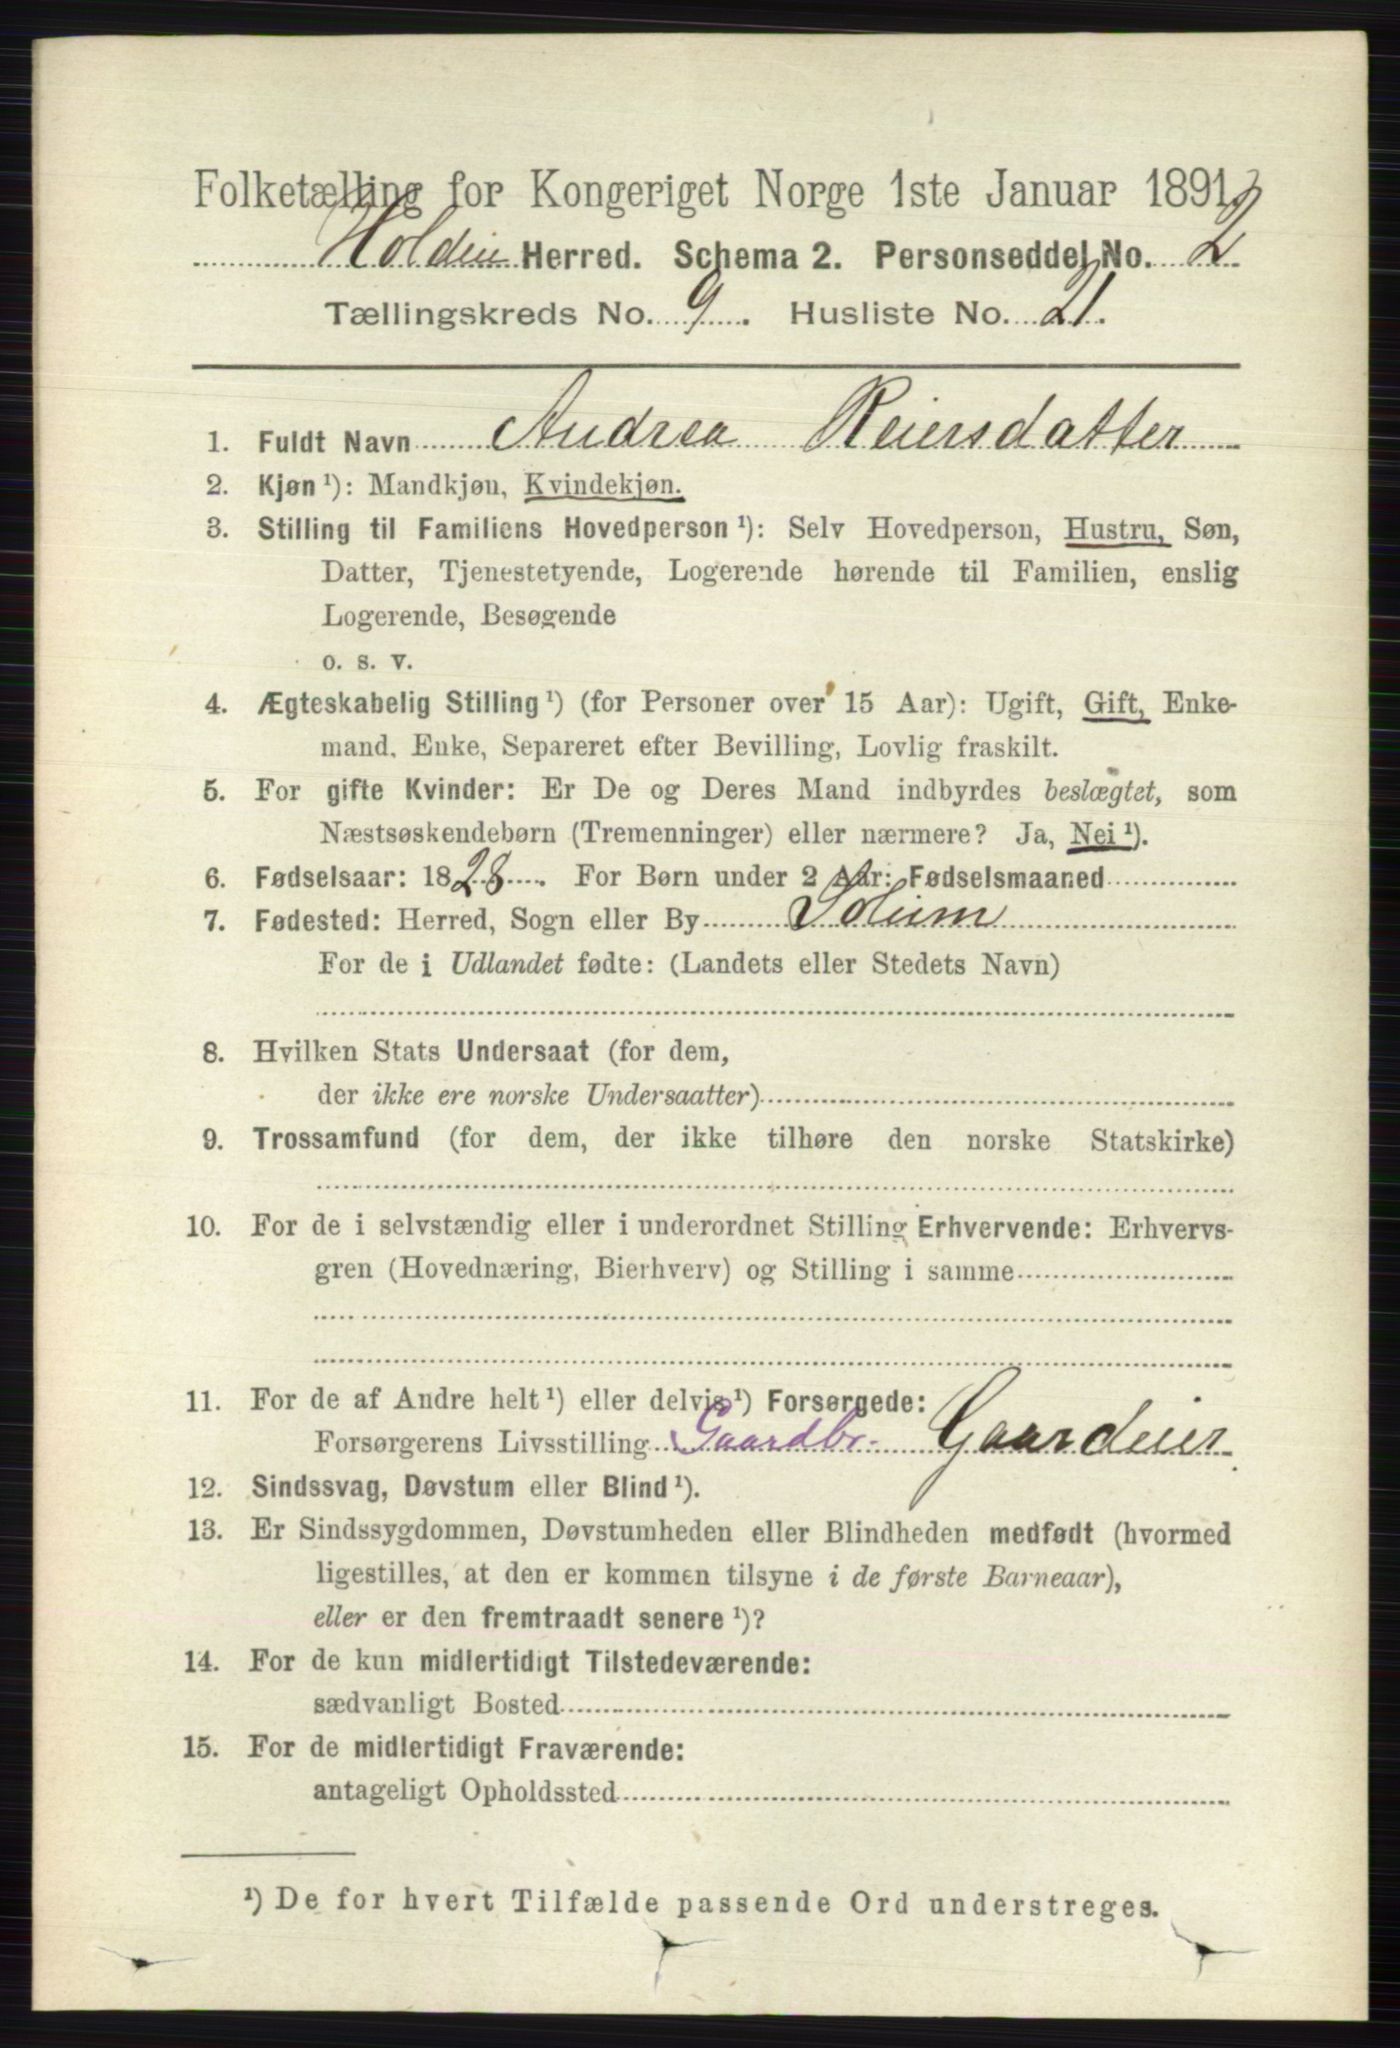 Folketælling for Kongeriget Norge 1ste Januar 1891.
Holden Herred. Schema 2. Personseddel No. 2
Tællingskreds No. 9. Husliste No. 21.
1. Fuldt Navn Andrea Reiersdatter
2. Kjøn ¹): Mandkjøn, Kvindekjøn.
3. Stilling til Familiens Hovedperson ¹): Selv Hovedperson, Hustru, Søn,
Datter, Tjenestetyende, Logerende hørende til Familien, enslig
Logerende, Besøgende
o. s. v.
4. Ægteskabelig Stilling ¹) (for Personer over 15 Aar): Ugift, Gift, Enke-
mand, Enke, Separeret efter Bevilling, Lovlig fraskilt.
5. For gifte Kvinder: Er De og Deres Mand indbyrdes beslægtet, som
Næstsøskendebørn (Tremenninger) eller nærmere? Ja, Nei ¹).
6. Fødselsaar: 1828. For Børn under 2 Aar: Fødselsmaaned
7. Fødested: Herred, Sogn eller By Solum
For de i Udlandet fødte: (Landets eller Stedets Navn)
8. Hvilken Stats Undersaat (for dem,
der ikke ere norske Undersaatter)
9. Trossamfund (for dem, der ikke tilhøre den norske Statskirke)
10. For de i selvstændig eller i underordnet Stilling Erhvervende: Erhvervs-
gren (Hovednæring, Bierhverv) og Stilling i samme
11. For de af Andre helt ¹) eller delvis ¹) Forsørgede:
Forsørgerens Livsstilling Gaardbr. Gaardeier
12. Sindssvag, Døvstum eller Blind ¹).
13. Er Sindssygdommen, Døvstumheden eller Blindheden medfødt (hvormed
ligestilles, at den er kommen tilsyne i de første Barneaar),
eller er den fremtraadt senere ¹)?
14. For de kun midlertidigt Tilstedeværende:
sædvanligt Bosted
15. For de midlertidigt Fraværende:
antageligt Opholdssted
¹) De for hvert Tilfælde passende Ord understreges.